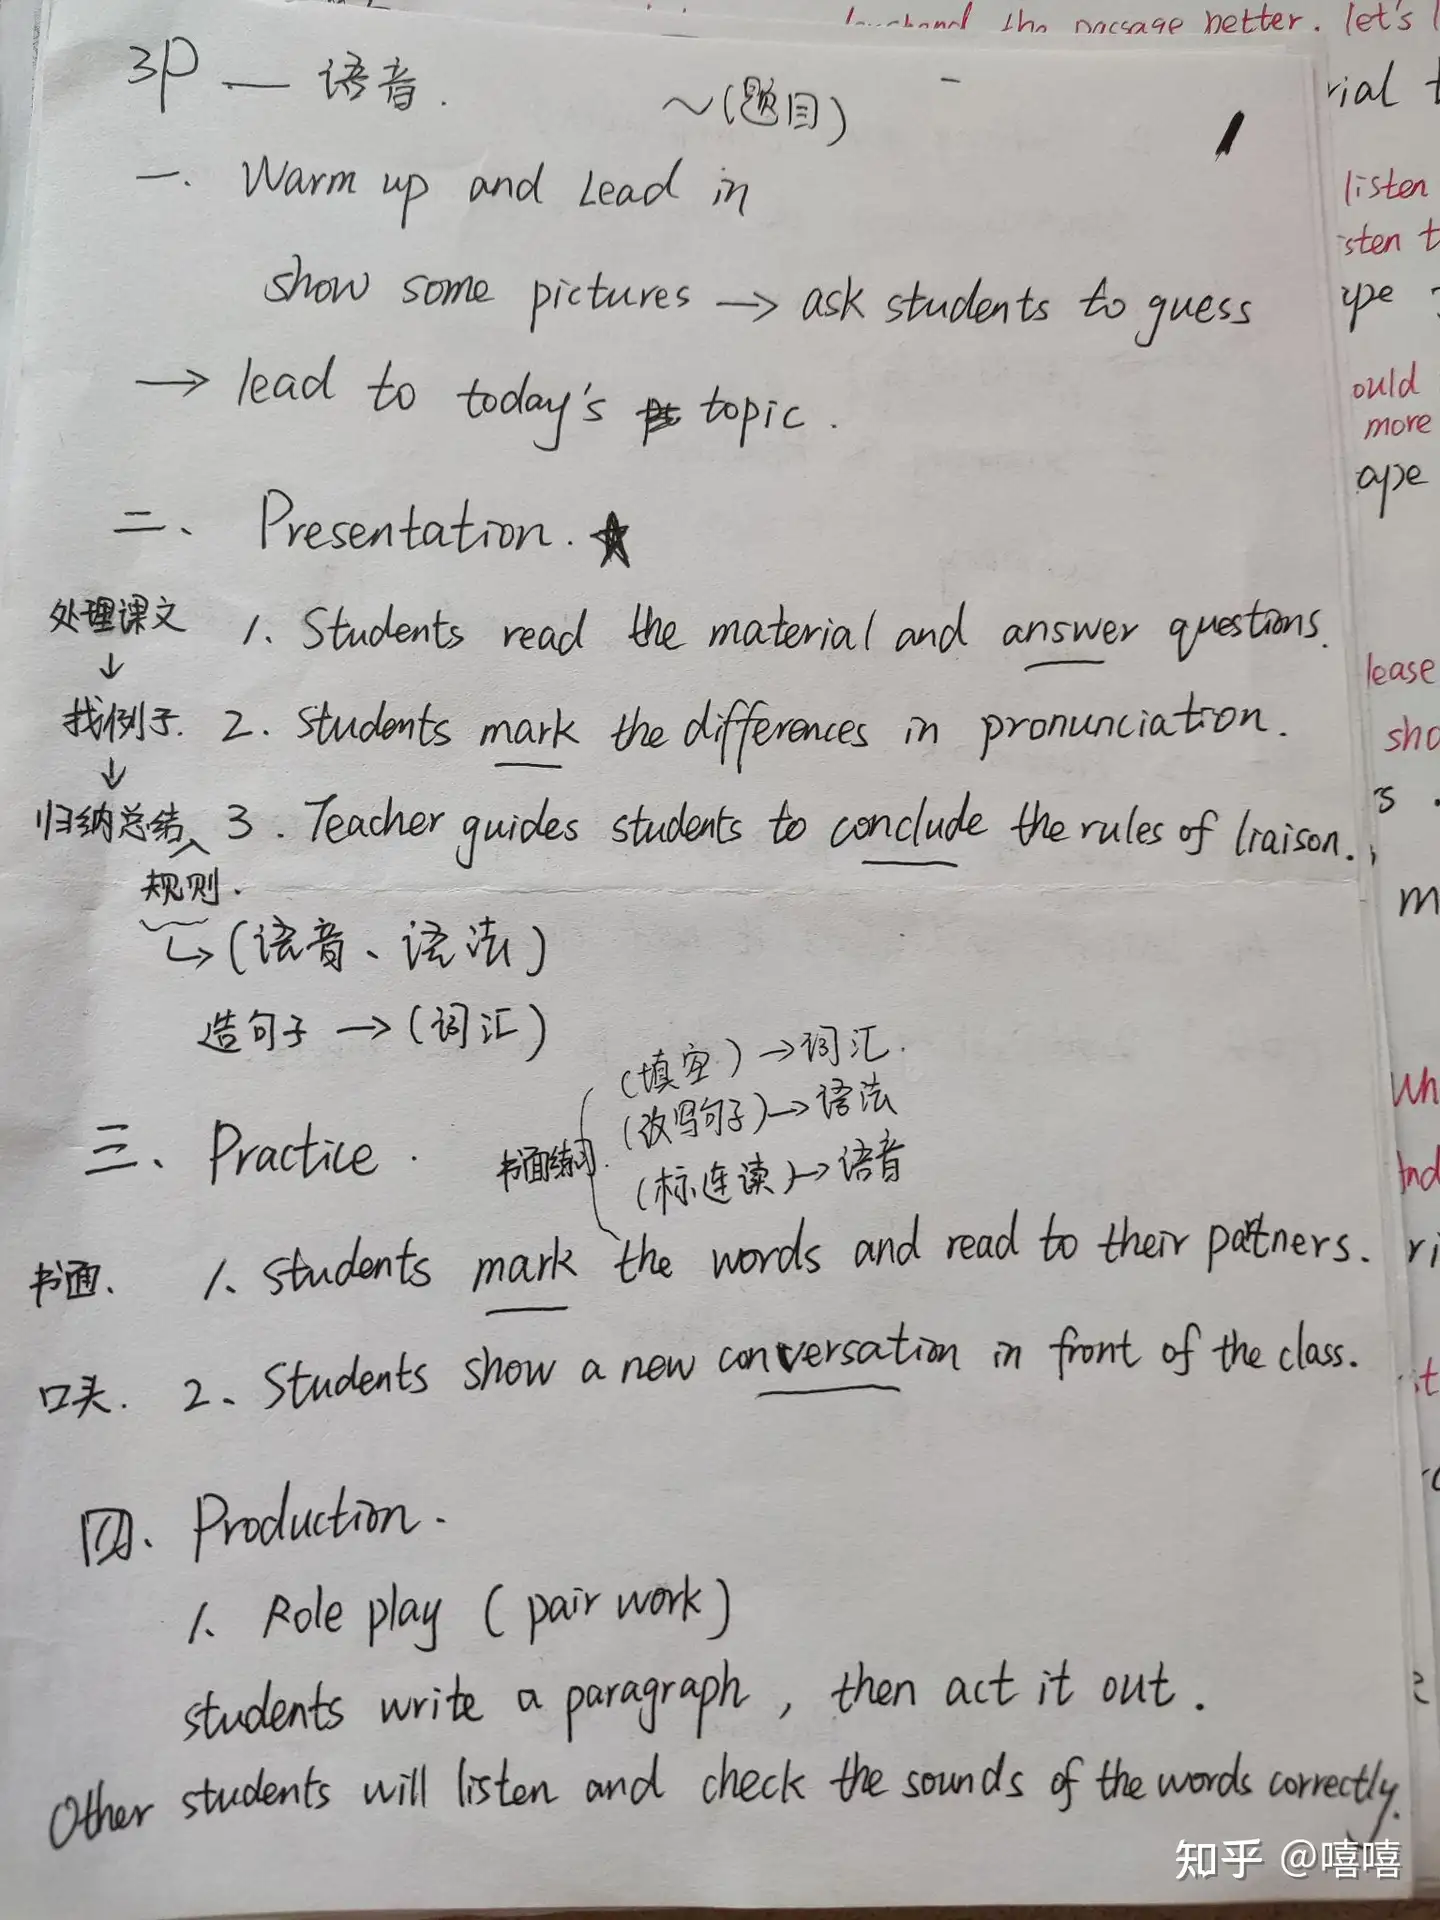 the passage better. let's
3P — 语音.
~(题目)
一. Warm up and Lead in
show some pictures → ask students to guess
→ lead to today's topic.
二、Presentation. ★
处理课文 1. Students read the material and answer questions.
↓
找例子. 2. Students mark the differences in pronunciation.
↓
归纳总结 3. Teacher guides students to conclude the rules of liaison.
规则.
↳ (语音、语法)
造句子 → (词汇)
(填空) → 词汇.
(改写句子) → 语法
三、Practice. 书面练习.
(标连读) → 语音
书面. 1. Students mark the words and read to their partners.
口头. 2、Students show a new conversation in front of the class.
四. Production.
1. Role play (pair work)
students write a paragraph, then act it out.
Other students will listen and check the sounds of the words correctly.
listen
more
知乎 @嘻嘻